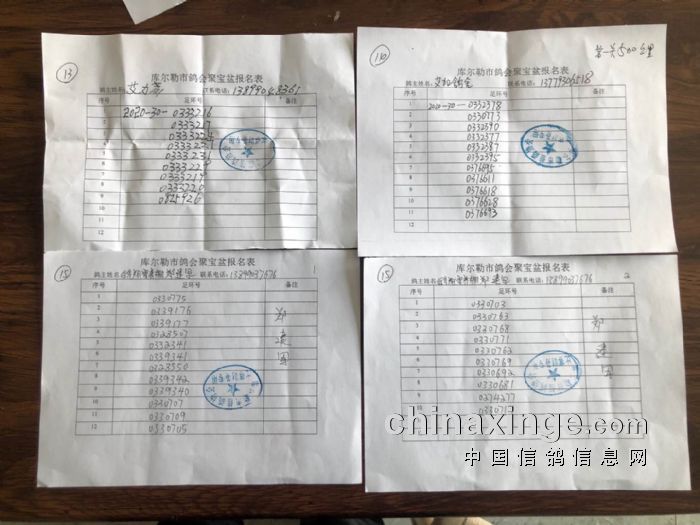 13
库尔勒市鸽会聚宝盆报名表
鸽主姓名: 联系电话: 13899048361
序号 足环号 备注
1 2020-30-0333216
2 0333217
3 0333224
4 0333227
5 0333231
6 0333229
7 0333219
8 0333220
9 0825926
10
11
12
110
第一关500公里
库尔勒市鸽会聚宝盆报名表
鸽主姓名: 联系电话: 13779306518
序号 足环号 备注
1 2020-30-0332378
2 0330773
3 0332390
4 0332377
5 0332387
6 0332395
7 0376695
8 0376611
9 0376618
10 0376628
11 0376693
12
15
1
库尔勒市鸽会聚宝盆报名表
鸽主姓名: 郑建国 联系电话: 13899037676
序号 足环号 备注
1 0330775
2 0339176
3 0339177
4 0323507
5 0332341
6 0339341
7 0323550
8 0339342
9 0339340
10 0330707
11 0330709
12 0330705
郑建国
15
2
库尔勒市鸽会聚宝盆报名表
鸽主姓名: 郑建国 联系电话: 13899037676
序号 足环号 备注
1 0330703
2 0330763
3 0330768
4 0330771
5 0330762
6 0330769
7 0330692
8 0330681
9 0274277
10 0330712
郑建国
chinaxinge.com
中国信鸽信息网